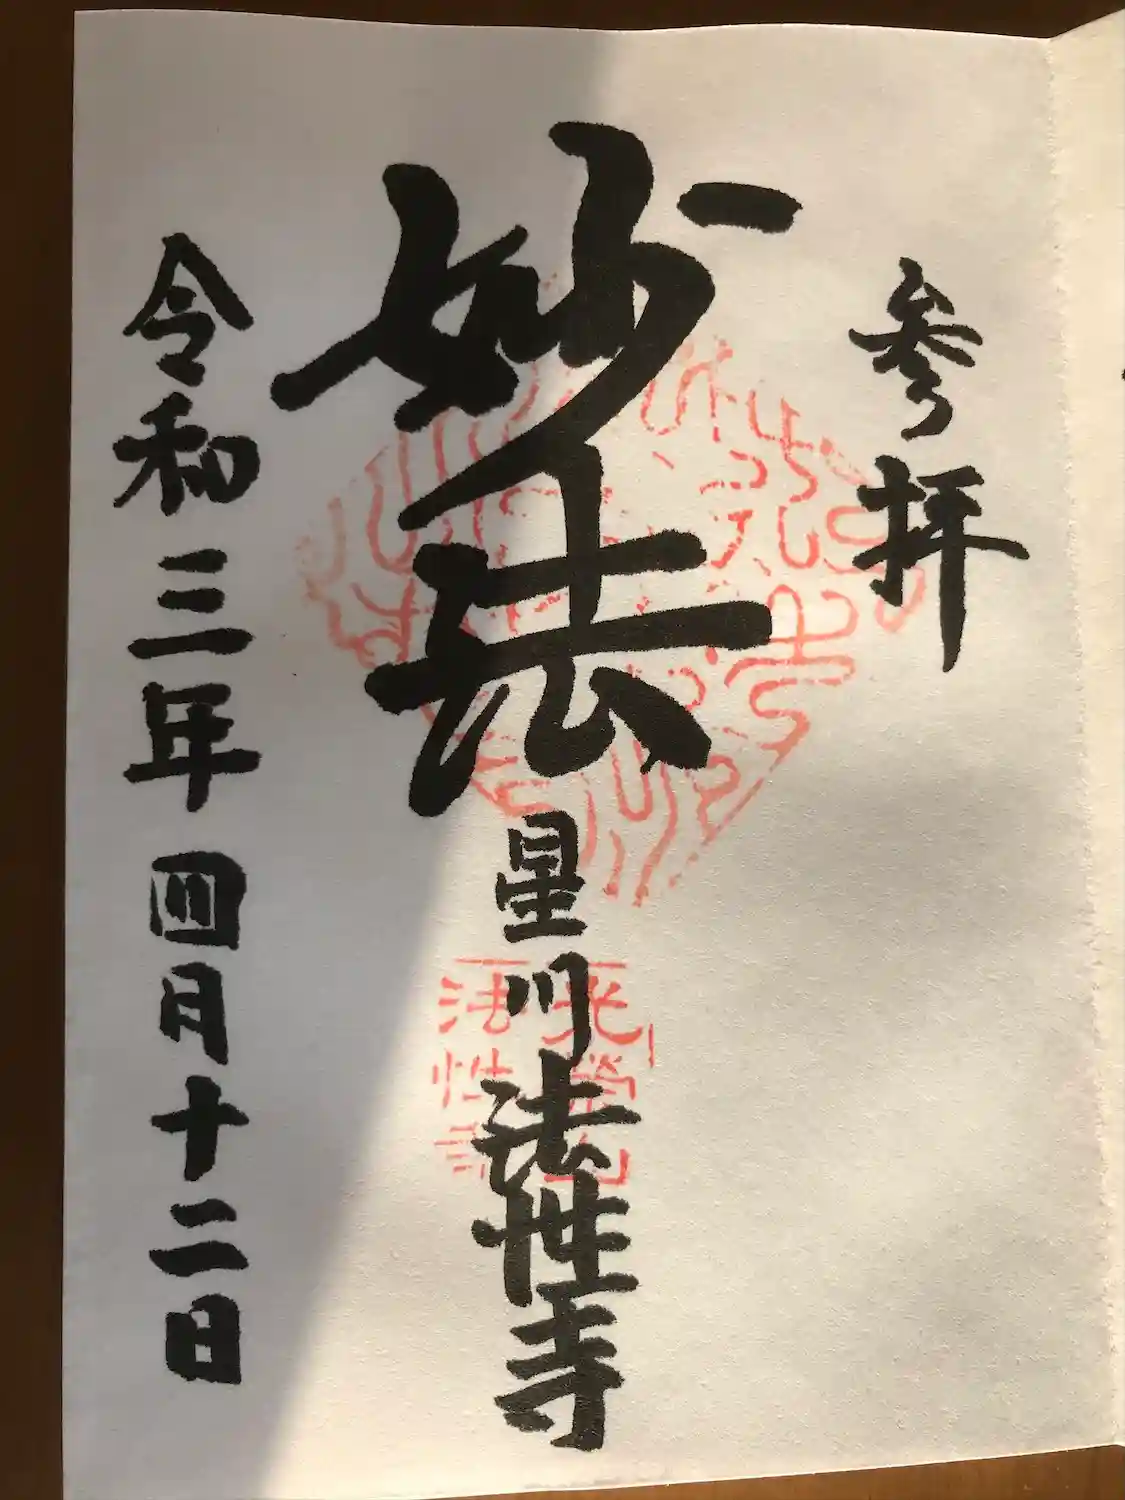 参拝
妙法
星川法性寺
令和三年四月十二日
法性